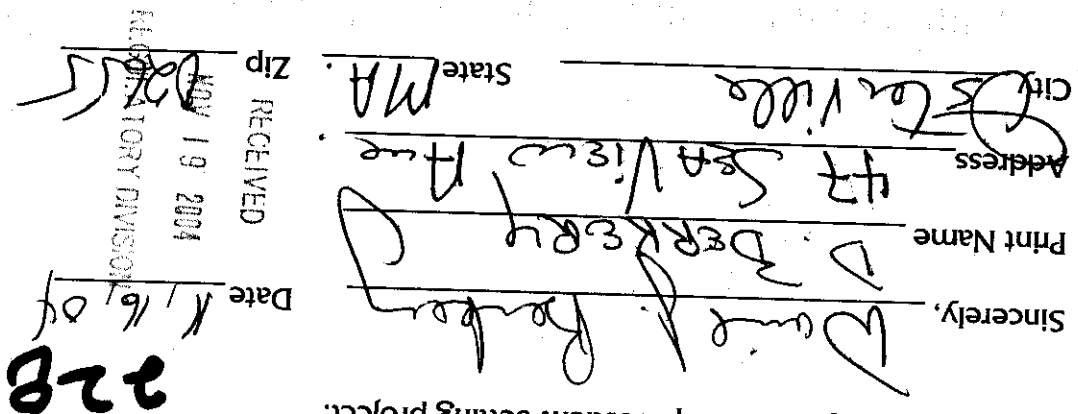 project.
Sincerely, Date 11/16/04
Print Name D. BERKERY
Address 47 SEA VIEW Ave
City Osterville State MA. Zip 02655
RECEIVED
NOV 19 2004
REGULATORY DIVISION